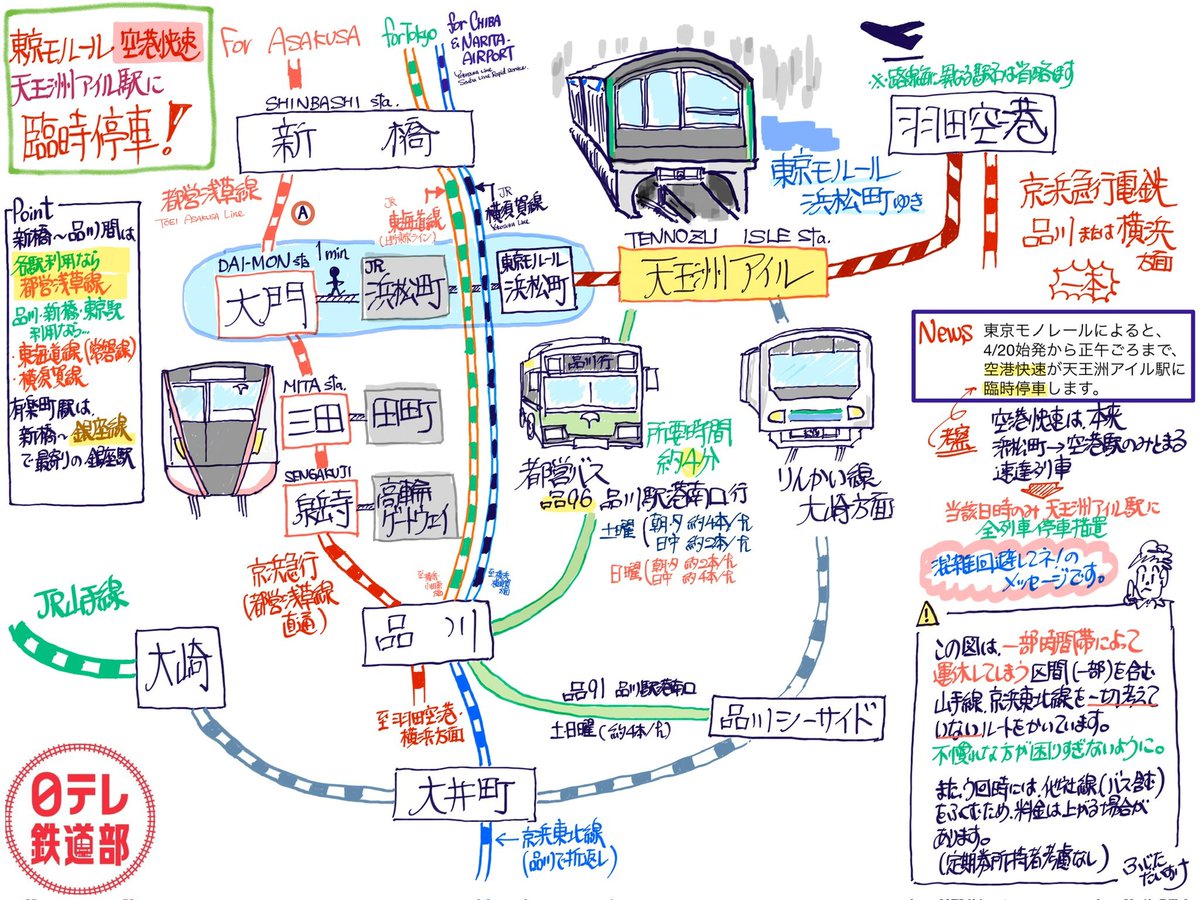 東京モルール 空港快速
天王洲アイル駅に
臨時停車!
for ASAKUSA
for Tokyo
for CHIBA
& NARITA-
AIRPORT
SHINBASHI sta.
新橋
羽田空港
都営浅草線
TOEI ASAKUSA Line
A
JR
東海道線
JR
横須賀線
東京モルール
浜松町ゆき
京浜急行電鉄
品川または横浜
方面
一本
Point
新橋〜品川間は
各駅利用なら
都営浅草線
品川・新橋・東京駅
利用なら…
・東海道線(常磐線)
・横須賀線
有楽町駅は、
新橋〜銀座線
で最寄りの銀座駅
DAI-MON sta
1min
大門
JR
浜松町
東京モルール
浜松町
TENNOZU ISLE sta.
天王洲アイル
MITA sta.
三田
田町
SENGAKUJI
泉岳寺
高輪
ゲートウェイ
品川行
所要時間
約4分
都営バス
品96 品川駅港南口行
土曜(朝夕 約4本/h
日中 約2本/h
日曜(朝夕 約2本/h
日中 約4本/h
りんかい線
大崎方面
News
東京モノレールによると、
4/20始発から正午ごろまで、
空港快速が天王洲アイル駅に
臨時停車します。
空港快速は、本来
浜松町→空港駅のみとまる
速達列車
当該日時のみ 天王洲アイル駅に
全列車停車措置
混雑回避してネ!の
メッセージです。
京浜急行
(都営浅草線
直通)
JR山手線
大崎
品川
至羽田空港・
横浜方面
品91 品川駅港南口
土日曜(約4本/h)
品川シーサイド
大井町
←京浜東北線
(品川で折返し)
日テレ
鉄道部
この図は、一部時間帯によって
運休してしまう区間(一部)を含む
山手線、京浜東北線を一切考えて
いないルートをかいています。
不慣れな方が困りすぎないように。
また、う回時には、他社線(バス含む)
をふくむため、料金は上がる場合が
あります。
(定期券所持者考慮なし)
ふじた
だいすけ